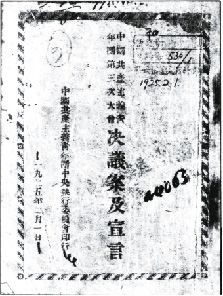 中國共產主義青
年團第三次大會
决議案及宣言
中國共產主義青年團中央執行委員會印行
一九二五年二月一日
1925.2.1.